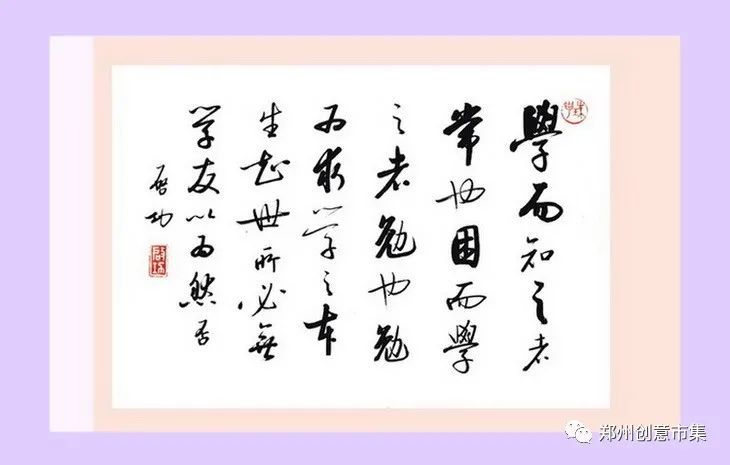 學而知之者
常也困而學
之者勉也勉
为求学之本
生知世所必無
学友以为然否
启功
郑州创意市集